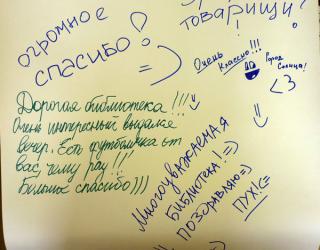 товарищи!
огромное
спасибо!
=)
Очень
Классно!!!
Город
Солнца!
<3
Дорогая библиотека!!!
Очень интересный выдался
вечер. Есть футболка от
вас, чему рад!!!
Больше спасибо)))
=)
Многоуважаемая
библиотека! =)
поздравляю =)
ПУХ! (=